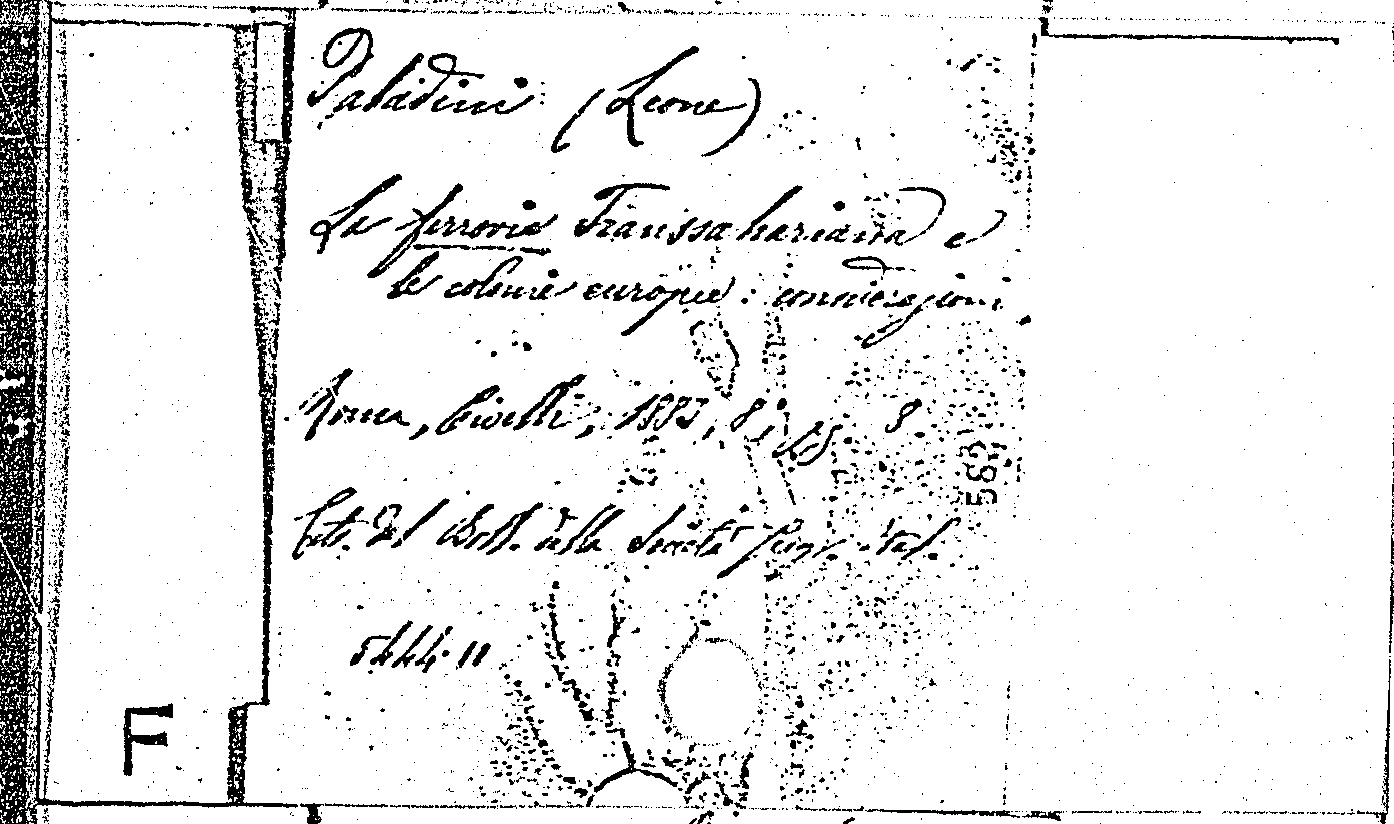 Paladini (Leone)
La ferrovia Transsahariana e
le colonie europee: considerazioni.
Roma, Civelli, 1883, 8,
Estr. dal Boll. della Società geogr. ital.
5444.11
583
F